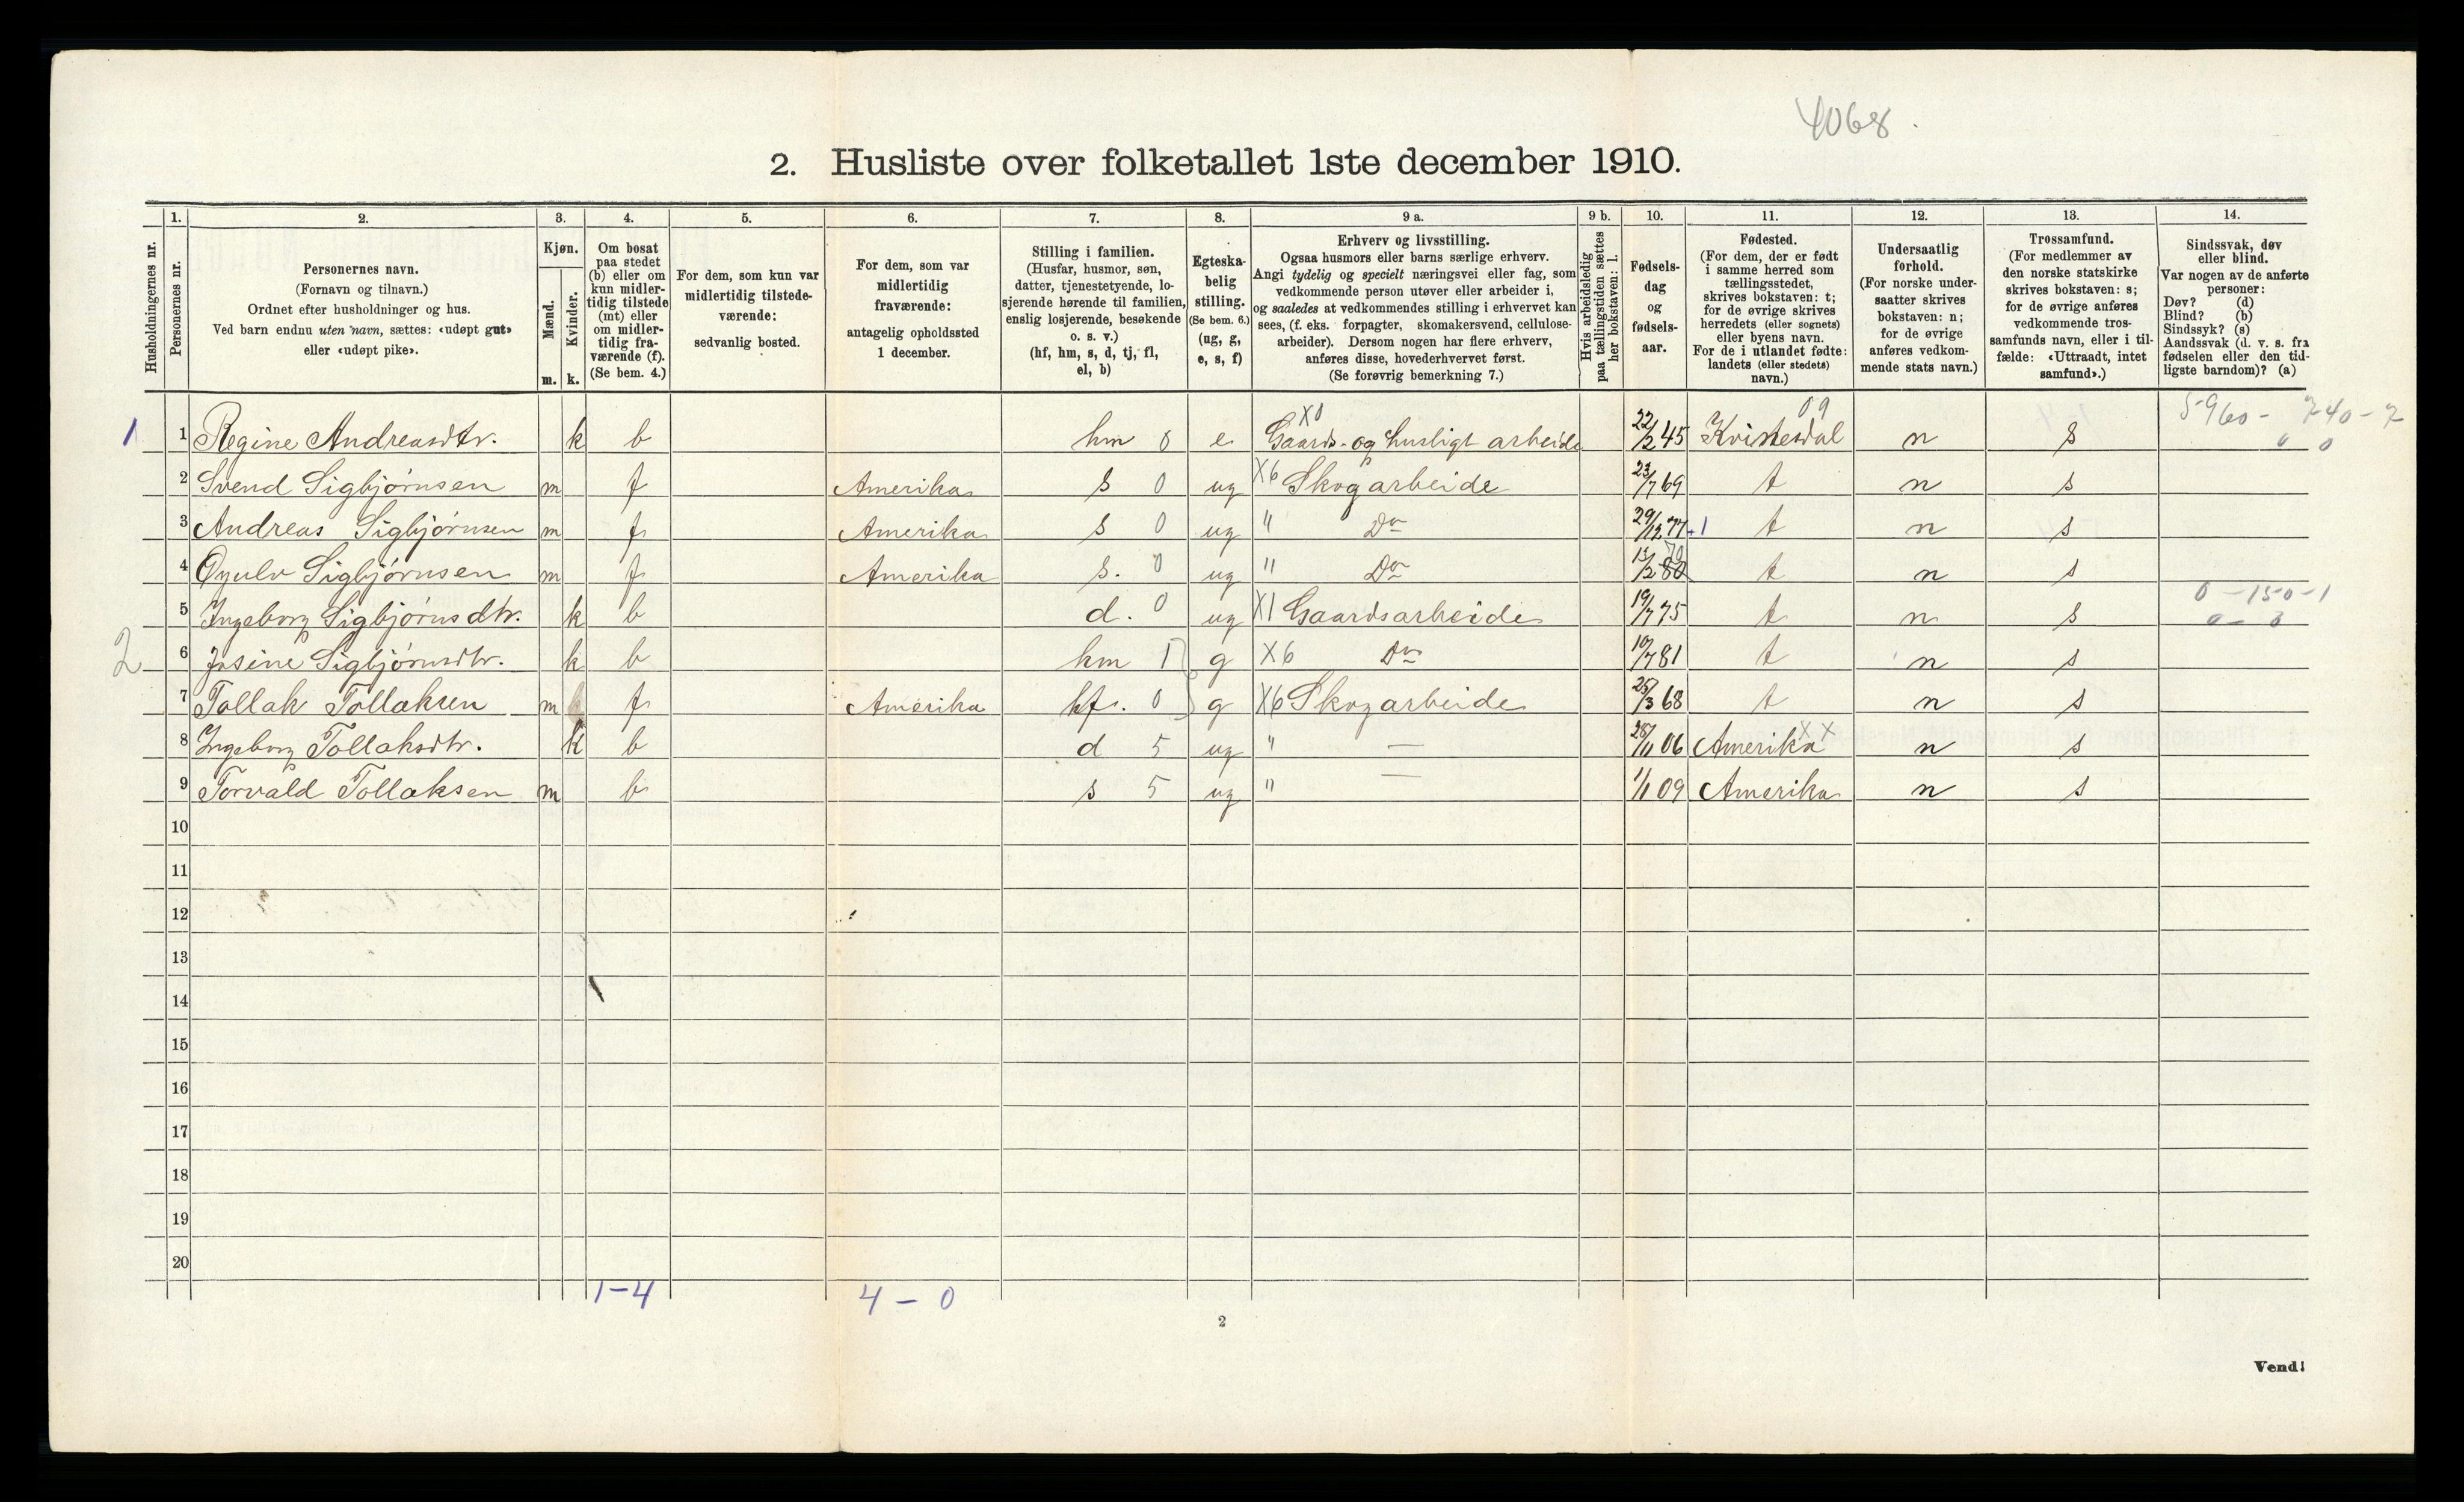 4068.
2. Husliste over folketallet 1ste december 1910.
Husholdningernes nr.
1. Personernes nr.
2. Personernes navn. (Fornavn og tilnavn.) Ordnet efter husholdninger og hus. Ved barn endnu uten navn, sættes: «udøpt gut» eller «udøpt pike».
3. Kjøn. Mænd. m. Kvinder. k.
4. Om bosat paa stedet (b) eller om kun midlertidig tilstede (mt) eller om midlertidig fraværende (f). (Se bem. 4.)
5. For dem, som kun var midlertidig tilstedeværende: sedvanlig bosted.
6. For dem, som var midlertidig fraværende: antagelig opholdssted 1 december.
7. Stilling i familien. (Husfar, husmor, søn, datter, tjenestetyende, losjerende hørende til familien, enslig losjerende, besøkende o. s. v.) (hf, hm, s, d, tj, fl, el, b)
8. Egteskabelig stilling. (Se bem. 6.) (ug, g, e, s, f)
9 a. Erhverv og livsstilling. Ogsaa husmors eller barns særlige erhverv. Angi tydelig og specielt næringsvei eller fag, som vedkommende person utøver eller arbeider i, og saaledes at vedkommendes stilling i erhvervet kan sees, (f. eks. forpagter, skomakersvend, cellulosearbeider). Dersom nogen har flere erhverv, anføres disse, hovederhvervet først. (Se forøvrig bemerkning 7.)
9 b. Hvis arbeidsledig paa tællingstiden sættes her bokstaven: l.
10. Fødselsdag og fødselsaar.
11. Fødested. (For dem, der er født i samme herred som tællingsstedet, skrives bokstaven: t; for de øvrige skrives herredets (eller sognets) eller byens navn. For de i utlandet fødte: landets (eller stedets) navn.)
12. Undersaatlig forhold. (For norske undersaatter skrives bokstaven: n; for de øvrige anføres vedkommende stats navn.)
13. Trossamfund. (For medlemmer av den norske statskirke skrives bokstaven: s; for de øvrige anføres vedkommende trossamfunds navn, eller i tilfælde: «Uttraadt, intet samfund».)
14. Sindssvak, døv eller blind. Var nogen av de anførte personer: Døv? (d) Blind? (b) Sindssyk? (s) Aandssvak (d. v. s. fra fødselen eller den tidligste barndom)? (a)
X0 09 5-960 - 740-2
1 1 Regine Andreasdtr. k b hm 0 e Gaards- og husligt arbeide 22/2 45 Kvinesdal n s 0 0
2 Svend Sigbjørnsen m f Amerika s 0 ug X6 Skogarbeide 23/7 69 t n s
3 Andreas Sigbjørnsen m f Amerika s 0 ug " Do 29/12 77 +1 t n s
4 Øyulv Sigbjørnsen m f Amerika s. 0 ug " Do 80 t n s
5 Ingeborg Sigbjørnsdtr. k b d. 0 ug X1 Gaardsarbeide 19/7 75 t n s 0-150-1
2 6 Josine Sigbjørnsdtr. k b hm 1 g X6 Do 10/7 81 t n s
7 Tollak Tollaksen m f Amerika hf. 0 g X6 Skogarbeide 25/3 68 t n s
8 Ingeborg Tollaksdtr. k b d 5 ug " — 28/11 06 Amerika XX n s
9 Torvald Tollaksen m b s 5 ug " — 1/1 09 Amerika n s
10
11
12
13
14
15
16
17
18
19
20
1-4 4-0
2
Vend!